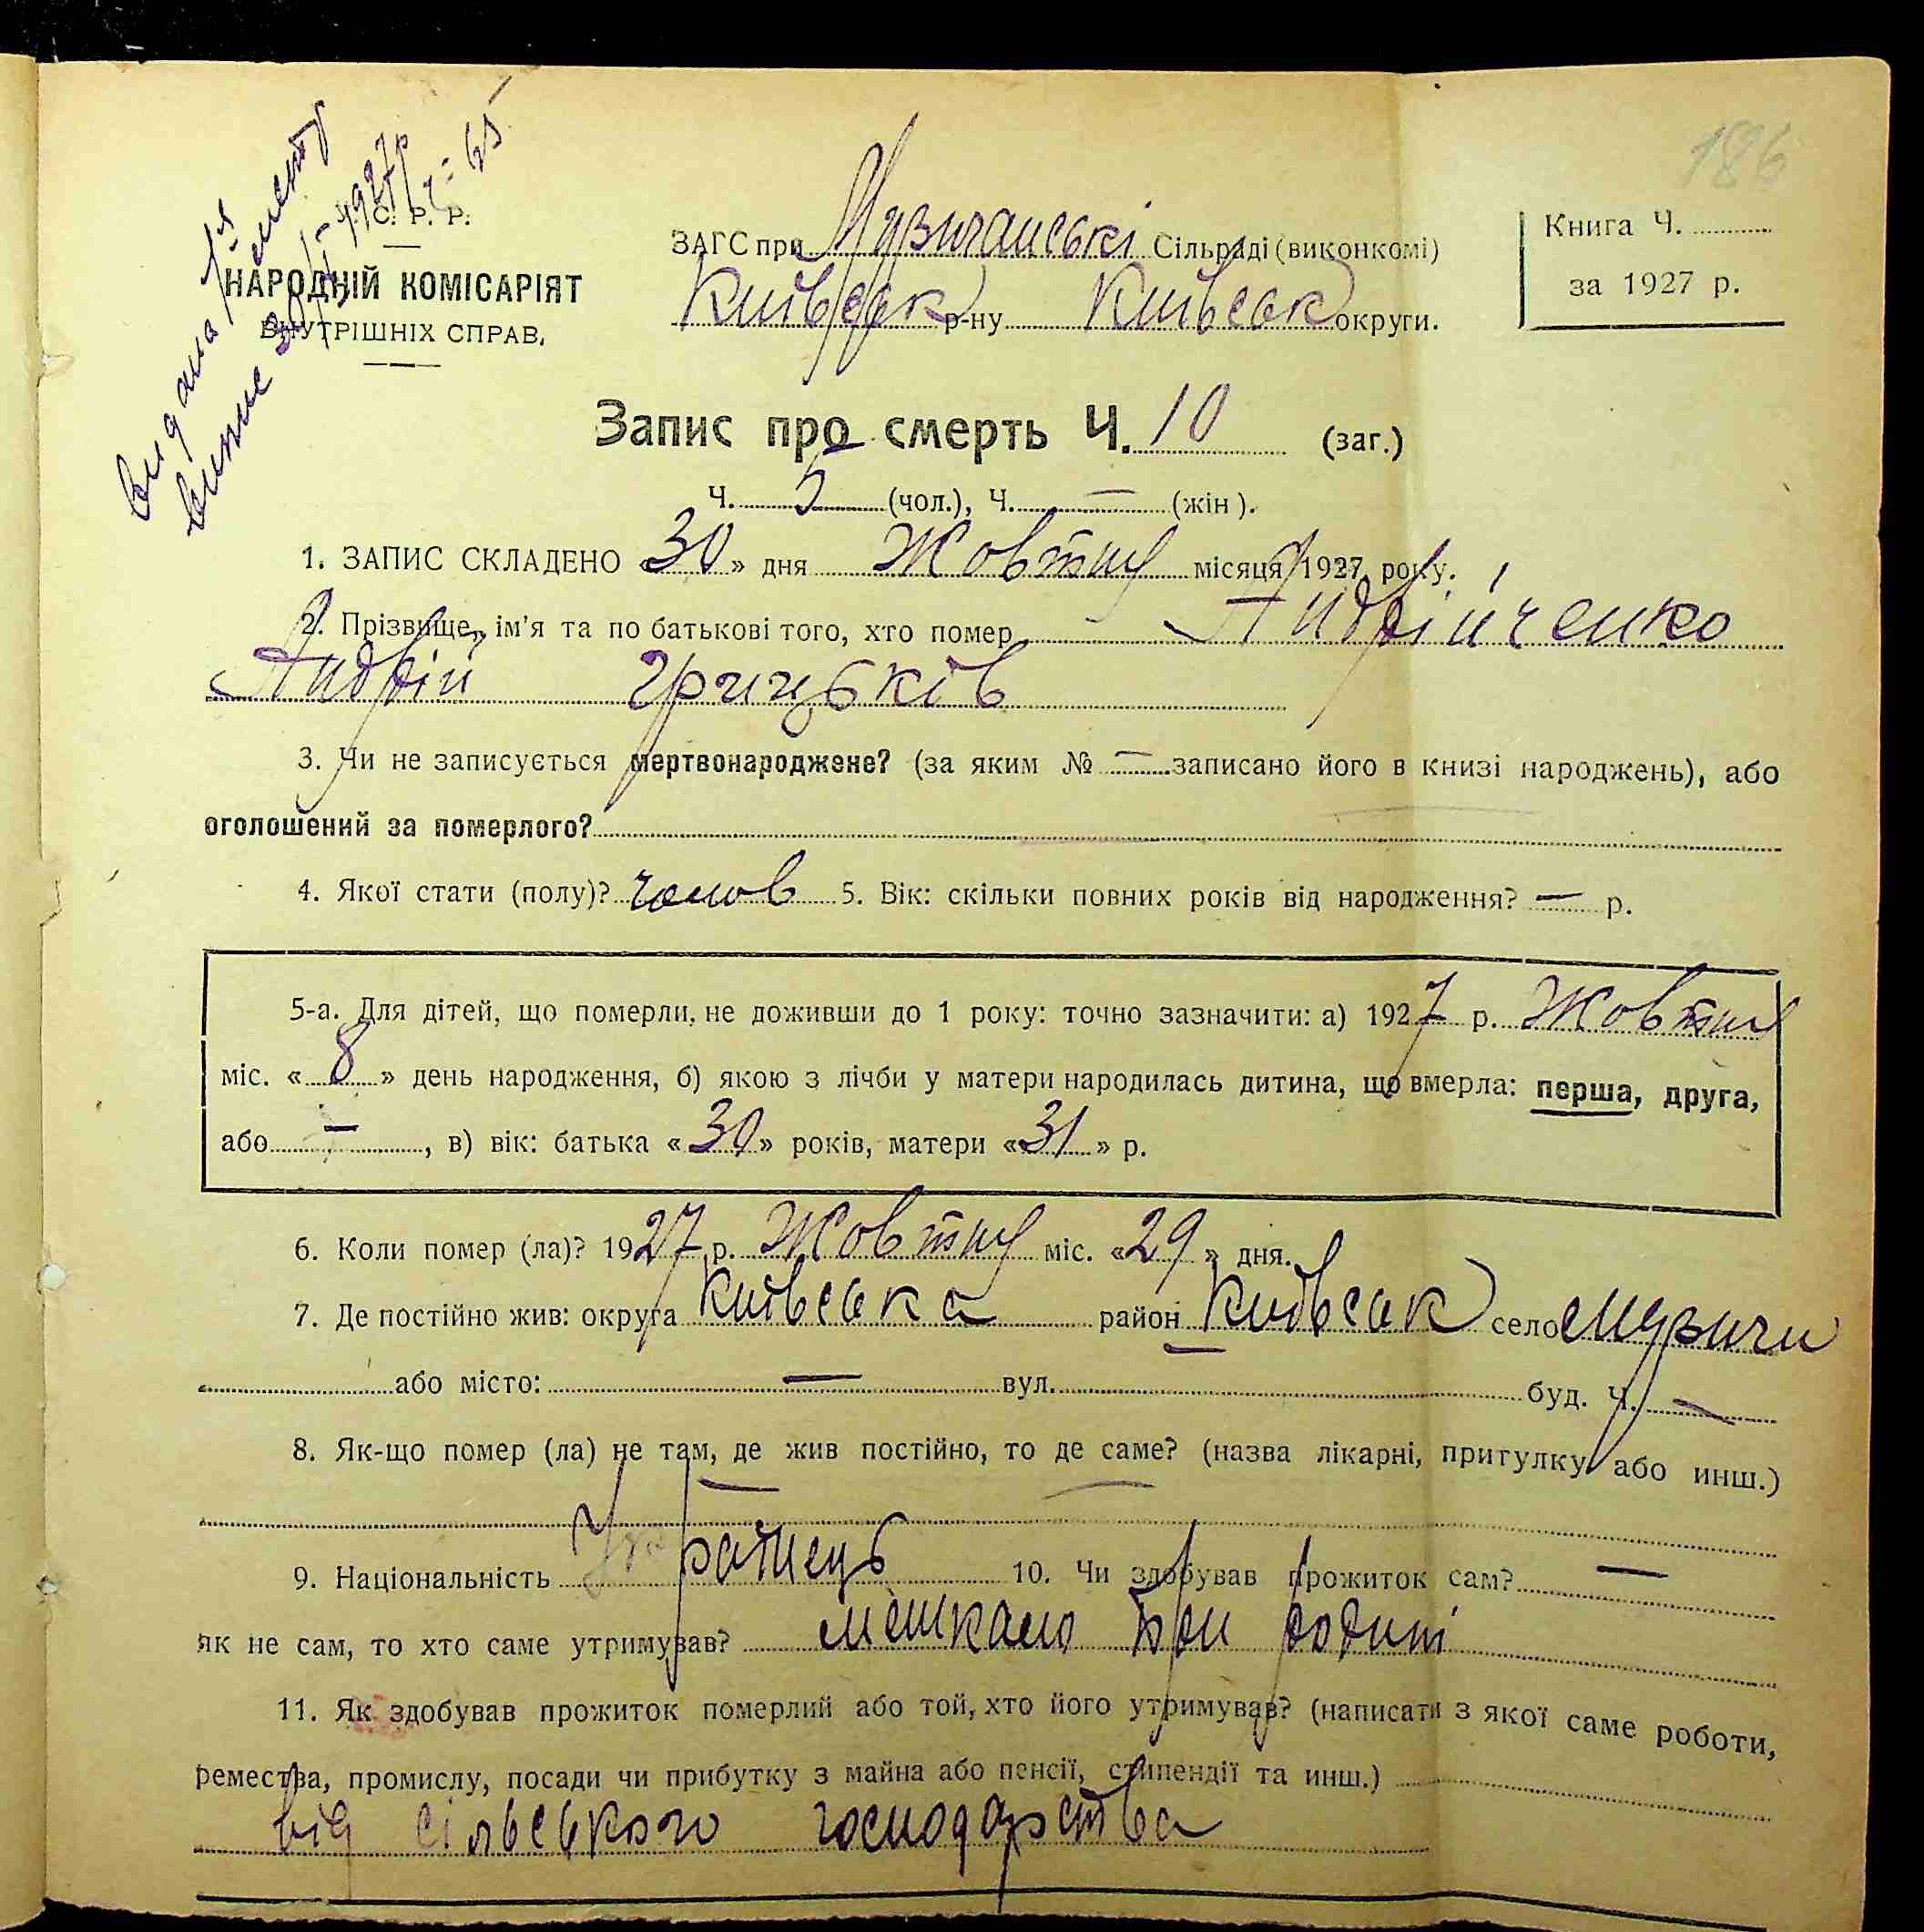 186
видана 1я
виписка
1927р
ч = 65
У. С. Р. Р.
НАРОДНІЙ КОМІСАРІЯТ
ВНУТРІШНІХ СПРАВ.
ЗАГС при Музичанські Сільраді (виконкомі)
Київськ р-ну Київськ округи.
Книга Ч.
за 1927 р.
Запис про смерть Ч. 10 (заг.)
Ч. 5 (чол.), Ч. — (жін).
1. ЗАПИС СКЛАДЕНО «30» дня Жовтня місяця 1927 року.
2. Прізвище, ім'я та по батькові того, хто помер Андрійченко
Андрій Грицьків
3. Чи не записується мертвонароджене? (за яким № — записано його в книзі народжень), або
оголошений за померлого?
4. Якої стати (полу)? чолов 5. Вік: скільки повних років від народження? — р.
5-а. Для дітей, що померли, не доживши до 1 року: точно зазначити: а) 1927 р. Жовтня
міс. «8» день народження, б) якою з лічби у матери народилась дитина, що вмерла: перша, друга,
або —, в) вік: батька «30» років, матери «31» р.
6. Коли помер (ла)? 1927 р. Жовтня міс. «29» дня.
7. Де постійно жив: округа Київська район Київськ село Музичи
або місто: — вул. буд. Ч. —
8. Як-що помер (ла) не там, де жив постійно, то де саме? (назва лікарні, притулку або инш.)
9. Національність Українець 10. Чи здобував прожиток сам? —
як не сам, то хто саме утримував? мешкало при родині
11. Як здобував прожиток померлий або той, хто його утримував? (написати з якої саме роботи,
ремества, промислу, посади чи прибутку з майна або пенсії, стипендії та инш.)
від сільського господарства